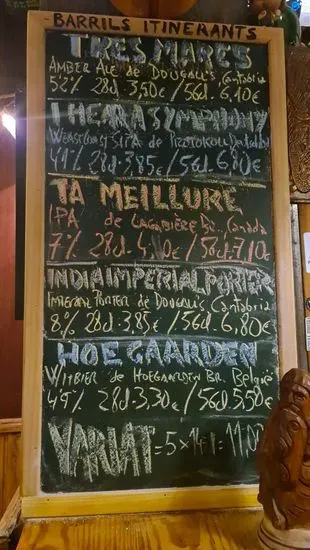 BARRILS ITINERANTS
TRES MARES
AMBER ALE de DOUGALL'S Cantabria
5,2% 28cl. 3,50€ / 56cl. 6,10€
I HEAR A SYMPHONY
WEAST COAST IPA de
4,1% 28cl. 3,85€ / 56cl. 6,80€
TA MEILLURE
IPA de LAGABIÈRE Br. Canada
7% 28cl. 4, 0€ / 56cl. 7,10€
INDIA IMPERIAL PORTER
IMPERIAL PORTER de DOUGALL'S Cantabria
8% 28cl. 3,85€ / 56cl. 6,80€
HOEGAARDEN
WITBIER de HOEGAARDEN BR. Bélgica
4,9% 28cl. 3,30€ / 56cl. 5,50€
VARIAT = 5x14cl = 11,00